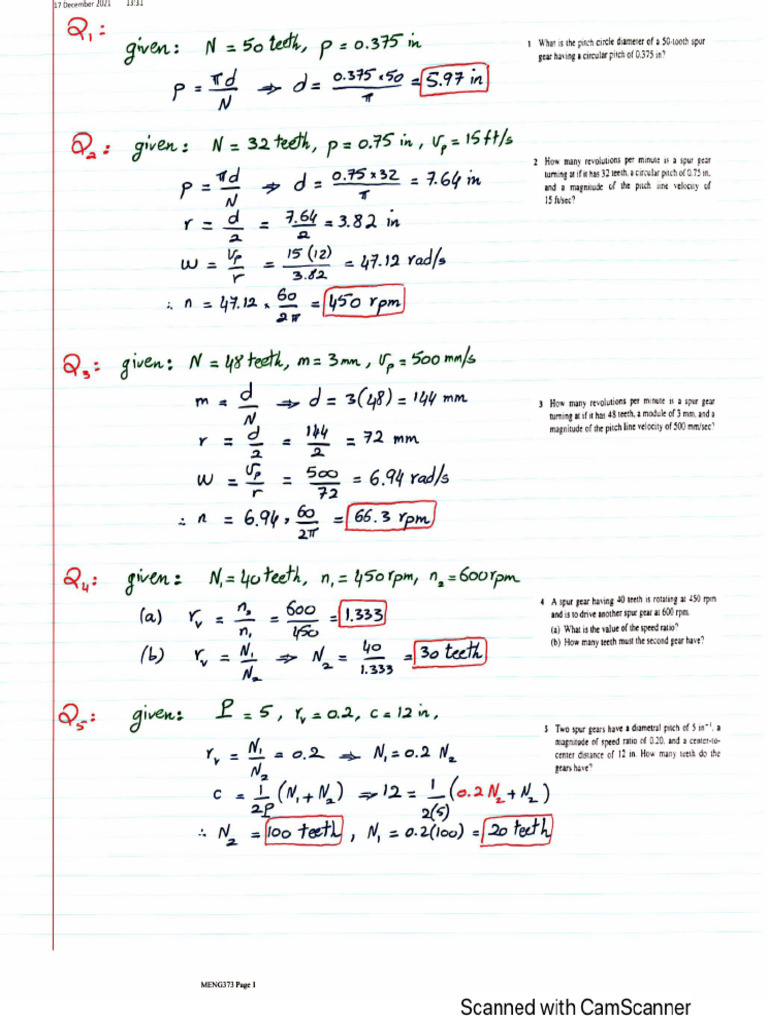 17 December 2021 13:31
Q₁:
given: N = 50 teeth, p = 0.375 in
p = πd/N ⇒ d = 0.375×50/π = 5.97 in
1 What is the pitch circle diameter of a 50-tooth spur
gear having a circular pitch of 0.375 in?
Q₂: given: N = 32 teeth, p = 0.75 in, vₚ = 15 ft/s
p = πd/N ⇒ d = 0.75×32/π = 7.64 in
r = d/2 = 7.64/2 = 3.82 in
ω = vₚ/r = 15(12)/3.82 = 47.12 rad/s
∴ n = 47.12 × 60/2π = 450 rpm
2 How many revolutions per minute is a spur gear
turning at if it has 32 teeth, a circular pitch of 0.75 in,
and a magnitude of the pitch line velocity of
15 ft/sec?
Q₃: given: N = 48 teeth, m = 3 mm, vₚ = 500 mm/s
m = d/N ⇒ d = 3(48) = 144 mm
r = d/2 = 144/2 = 72 mm
ω = vₚ/r = 500/72 = 6.94 rad/s
∴ n = 6.94 × 60/2π = 66.3 rpm
3 How many revolutions per minute is a spur gear
turning at if it has 48 teeth, a module of 3 mm, and a
magnitude of the pitch line velocity of 500 mm/sec?
Q₄: given: N₁ = 40 teeth, n₁ = 450 rpm, n₂ = 600 rpm
(a) rᵥ = n₂/n₁ = 600/450 = 1.333
(b) rᵥ = N₁/N₂ ⇒ N₂ = 40/1.333 = 30 teeth
4 A spur gear having 40 teeth is rotating at 450 rpm
and is to drive another spur gear at 600 rpm.
(a) What is the value of the speed ratio?
(b) How many teeth must the second gear have?
Q₅: given: P = 5, rᵥ = 0.2, c = 12 in,
rᵥ = N₁/N₂ = 0.2 ⇒ N₁ = 0.2 N₂
c = 1/2P (N₁ + N₂) ⇒ 12 = 1/2(5) (0.2 N₂ + N₂)
∴ N₂ = 100 teeth, N₁ = 0.2(100) = 20 teeth
5 Two spur gears have a diametral pitch of 5 in⁻¹, a
magnitude of speed ratio of 0.20, and a center-to-
center distance of 12 in. How many teeth do the
gears have?
MENG373 Page 1
Scanned with CamScanner